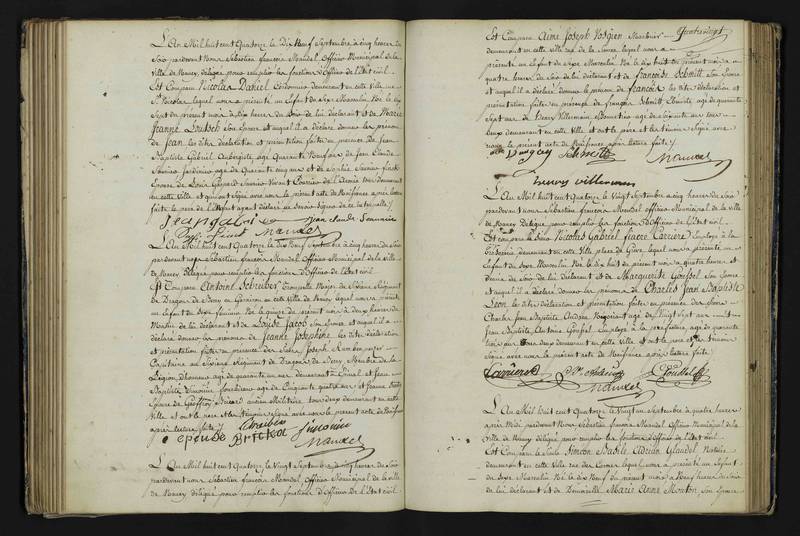 L'An Mil huit cent Quatorze le Dix Neuf Septembre à cinq heures du
Soir pardevant Nous Sébastien françois Mandel, Officier Municipal de la
Ville de Nancy, délégué pour remplir les fonctions d'Officier de l'état civil.
Est Comparu Nicolas Daniel Cordonnier demeurant en cette Ville rue
St Nicolas lequel nous a présenté un Enfant du Sexe Masculin Né le dix
Sept du présent mois à dix heures du Soir de lui déclarant et de Marie
Jeanne Loutsch Son Epouse et auquel il a déclaré donner le prénom
de Jean les dites déclaration et présentation faites en présence de Jean
Baptiste Gabriel Aubergiste agé Quarante Neuf ans de Jean Claude
Saunier Jardinier agé de Quarante cinq ans et de Sophie
Epouse de Louis Gaspard
en cette Ville et qui ont signé avec nous le présent acte de Naissance après lecture
faite le père de l'Enfant ayant déclaré ne savoir signer de ce interpellé./.
Jean gabriel Jean claude Saunier
Mandel
L'An Mil huit cent Quatorze le dix Neuf Septembre à cinq heures du Soir
pardevant nous Sébastien françois Mandel Officier Municipal de la Ville
de Nancy Délégué pour remplir les fonctions d'Officier de l'état civil
Est Comparu Antoine Schreiber Trompette Major du Sixième Régiment
de Dragons de Berry en Garnison en cette Ville de Nancy lequel nous a présenté
un Enfant du Sexe féminin Né le quinze du présent mois à deux heures du
Matin de lui déclarant et de Louise Jacob Son Epouse et auquel il a
déclaré donner les prénoms de Jeanne Joséphine les dites déclaration
et présentation faites en présence des Sieurs Joseph
Capitaine au Sixième Régiment de Dragons de Berry Membre de la
Légion d'honneur agé de quarante un ans demeurant à Epinal et Jean
Baptiste Simonin agé de Cinquante quatre ans et Jeanne
Epouse de Geoffroy Brickard ancien Militaire tous deux demeurant en cette
Ville et ont le père et les témoins signé avec nous le présent acte de Naissance
après lecture faite./.
épouse Bricka Simonin
Mandel
L'An Mil huit cent Quatorze le Vingt Septembre à cinq heures du Soir
pardevant nous Sébastien françois Mandel Officier Municipal de la Ville
de Nancy délégué pour remplir les fonctions d'Officier de l'état civil
Quatre vingt
Est Comparu Aimé Joseph Vosgien
demeurant en cette Ville rue de la Source lequel nous a
présenté un Enfant du Sexe Masculin Né le dix huit du présent mois à
quatre heures du Soir de lui déclarant et de françoise Schmitt Son Epouse
et auquel il a déclaré donner le prénom de françois les dites déclaration et
présentation faites en présence de françois Schmitt Ebéniste agé de quarante
Sept ans de Henry Villemin agé de soixante
deux demeurant en cette Ville et ont le père et les témoins signé avec
nous le présent acte de Naissance après lecture faite./.
Vosgien Schmitt Mandel
henry villemin
L'An Mil huit cent Quatorze le Vingt Septembre à cinq heures du Soir
pardevant nous Sébastien françois Mandel officier Municipal de la Ville
de Nancy Délégué pour remplir les fonctions d'Officier de l'état civil.
Est comparu le Sieur Nicolas Gabriel fiacre Carrière Employé à la
demeurant en cette Ville place de Grève lequel nous a présenté un
Enfant du Sexe Masculin Né le dix huit du présent mois à quatre heures et
demie du Soir de lui déclarant et de Marguerite Son Epouse
et auquel il a déclaré donner les prénoms de Charles Jean Baptiste
Léon les dites déclaration et présentation faites en présence des Sieurs
Charles Jean Baptiste Négociant agé de Vingt Sept ans et
Jean Baptiste Antoine Employé à la préfecture agé de quarante
trois ans tous deux demeurant en cette Ville et ont le père et les témoins
Signé avec nous le présent acte de Naissance après lecture faite./.
Carrière
Mandel
L'An Mil huit cent Quatorze le Vingt un Septembre à quatre heures
après Midi pardevant Nous Sébastien françois Mandel Officier Municipal de la
Ville de Nancy délégué pour remplir les fonctions d'Officier de l'état civil
Est Comparu le Sieur Simon Basile Adrien Glaudel Notaire
demeurant en cette Ville rue des Carmes lequel nous a présenté un Enfant
du Sexe Masculin Né le dix Neuf du présent mois à Neuf heures du Soir
de lui déclarant et de Demoiselle Marie Anne Mouton Son Epouse